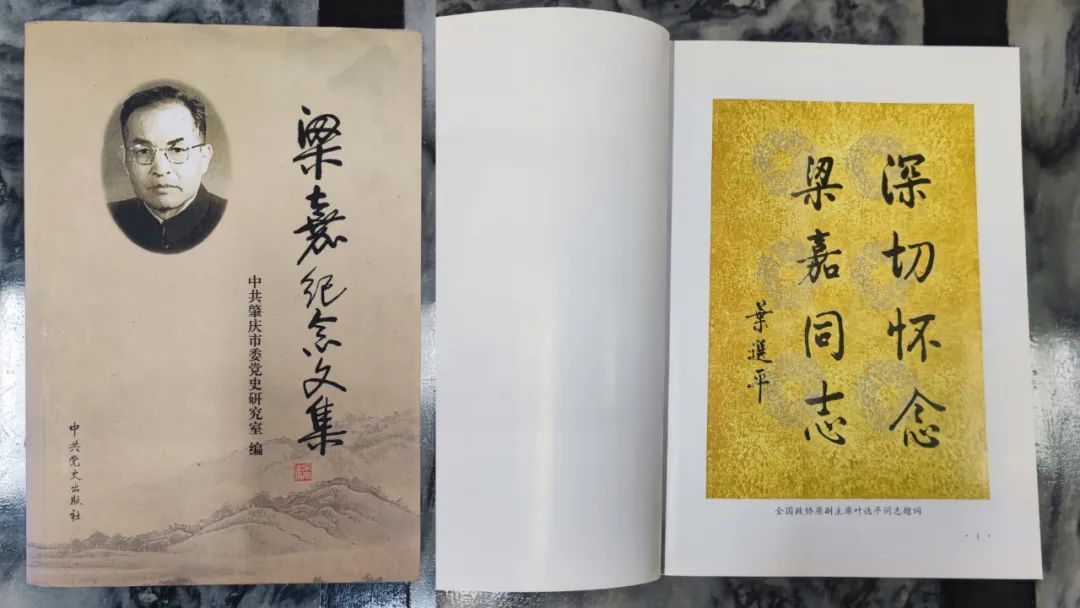 梁嘉纪念文集
中共肇庆市委党史研究室 编
中共党史出版社
深切怀念
梁嘉同志
葉選平
全国政协原副主席叶选平同志题词
· 1 ·